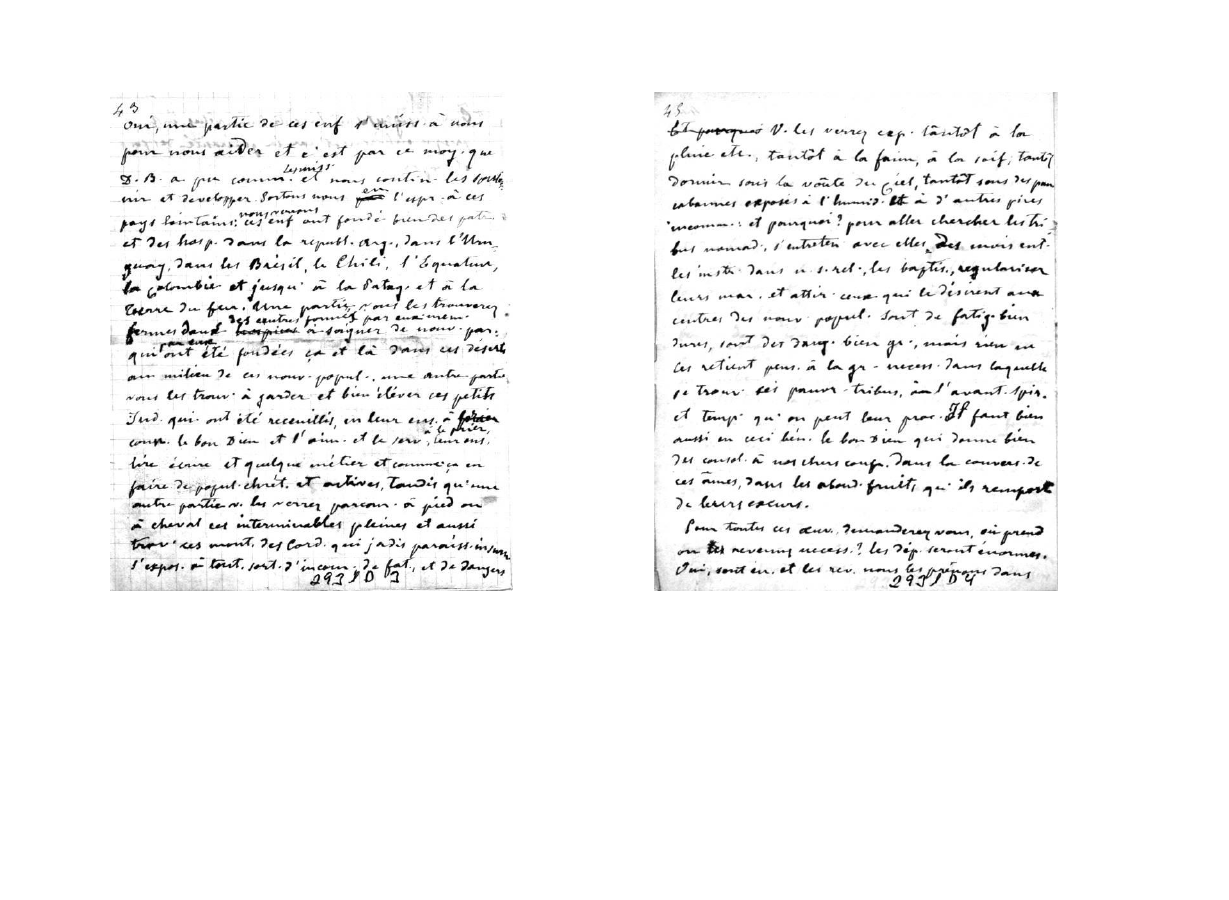 43
Oui, une partie de ces enf s'uniss. à nous
pour nous aider et c'est par ce moy. que
D. B. a pu comm. les miss. et nous contin. les soute-
nir et développer. Sortons nous en l'espr. à ces
pays lointains; nous verrons ces enf ont fondé bien des
et des hosp. dans la républ. Arg., dans l'Uru-
guay, dans les Brésil, le Chili, l'Equateur,
la Colombie et jusqu'à la Patag. et à la
Terre du feu. Une partie vous les trouverez
des centres formés par eux
fermes dans à soigner de nouv. par.
qui par eux ont été fondées ça et là dans ces déserts
au milieu de ces nouv. popul., une autre partie
vous les trouv. à garder et bien élever ces petits
Ind. qui ont été recueillis, en leur ens. à
conn. le bon Dieu et l'aim. et le serv., à le prier, leur ens.
lire écrire et quelque métier et comme ça en
faire de popul. chrét. et actives, tandis qu'une
autre partie v. les verrez parcour. à pied ou
à cheval ces interminables pleines et aussi
trav. ces mont. des Cord. qui jadis paraiss.
s'expos. à tout. sort. d'incom., de fat., et de dangers
293 I D 3
45
Et pourquoi V. les verrez exp. tantôt à la
pluie etc., tantôt à la faim, à la soif, tantôt
dormir sous la voûte du Ciel, tantôt sous des pau
cabannes exposés à l'humid. et à d'autres pires
incomm.: et pourquoi? pour aller chercher les tri-
bus nomad., s'entreten avec elles des mois ent.
les instr. dans n. s. rel., les baptis., regulariser
leurs mar. et attir. ceux qui le désirent aux
centres des nouv. popul. Sont de fatig. bien
dures, sont des dang. bien gr., mais rien en
ces retient pens. à la gr. necess. dans laquelle
se trouv. ses pauvr. tribus, à l'avant. spir.
et temp. qu'on peut leur proc. Il faut bien
aussi en ceci bén. le bon Dieu qui donne bien
des consol. à nos chers confr. dans la convers. de
ces âmes, dans les abond. fruits, qu'ils remport
de leurs sueurs.
Pour toutes ces œuv. demanderez vous, où prend
on les revenus necess.? les dép. seront énormes.
Oui, sont én. et les rev. nous les prenons dans
293 I D 4